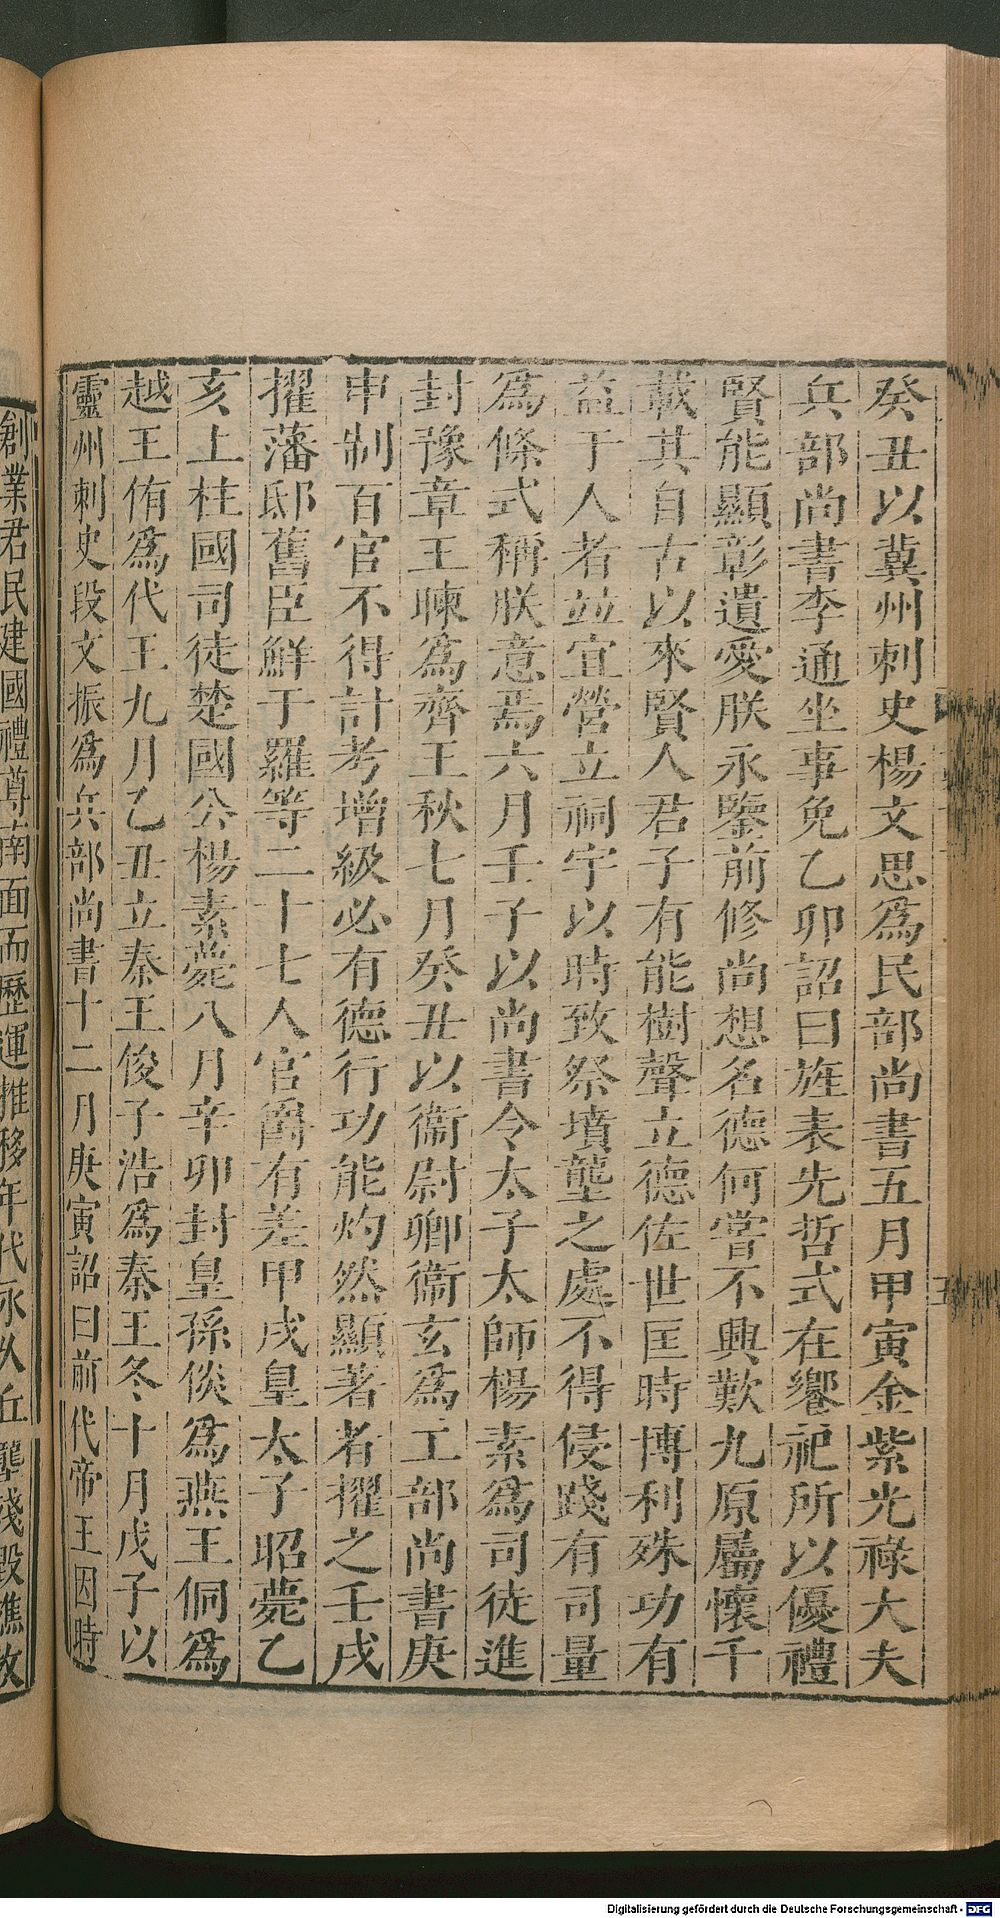 癸丑以冀州刺史楊文思爲民部尚書五月甲寅金紫光祿大夫
兵部尚書李通坐事免乙卯詔曰旌表先哲式在饗祀所以優禮
賢能顯彰遺愛朕永鑒前修尚想名德何嘗不興歎九原屬懷千
載其自古以來賢人君子有能樹聲立德佐世匡時博利殊功有
益于人者竝宜營立祠宇以時致祭墳壟之處不得侵踐有司量
爲條式稱朕意焉六月壬子以尚書令太子太師楊素爲司徒進
封豫章王暕爲齊王秋七月癸丑以衞尉卿衞玄爲工部尚書庚
申制百官不得計考增級必有德行功能灼然顯著者擢之壬戌
擢藩邸舊臣鮮于羅等二十七人官爵有差甲戌皇太子昭薨乙
亥上柱國司徒楚國公楊素薨八月辛卯封皇孫倓爲燕王侗爲
越王侑爲代王九月乙丑立秦王俊子浩爲秦王冬十月戊子以
靈州刺史段文振爲兵部尚書十二月庚寅詔曰前代帝王因時
創業君民建國禮尊南面而歷運推移年代永久丘壟殘毀樵牧
Digitalisierung gefördert durch die Deutsche Forschungsgemeinschaft - DFG